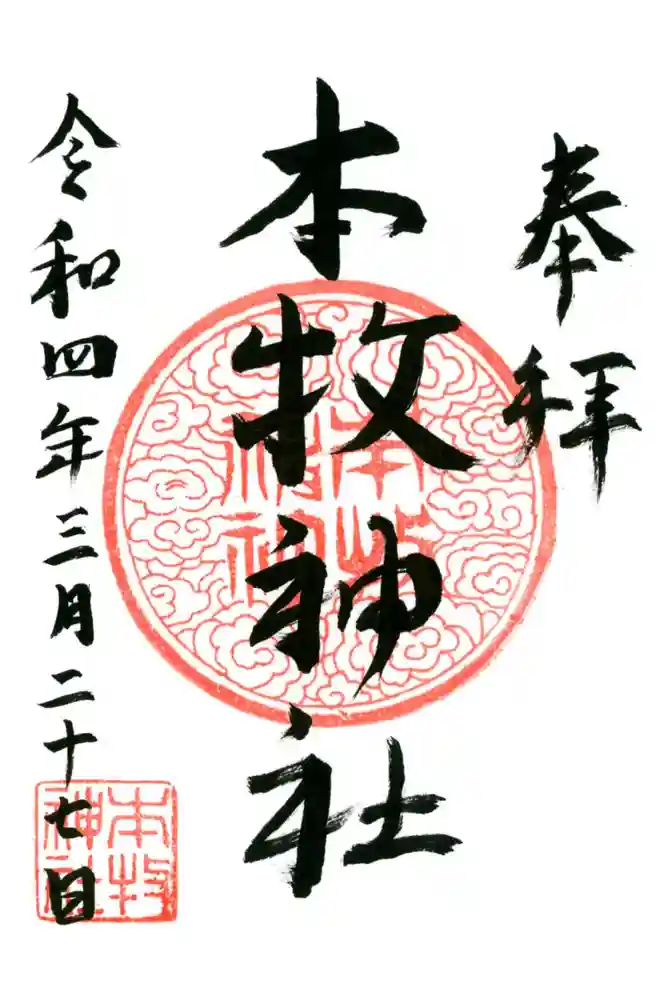 奉拝
本牧神社
令和四年三月二十七日
本牧神社